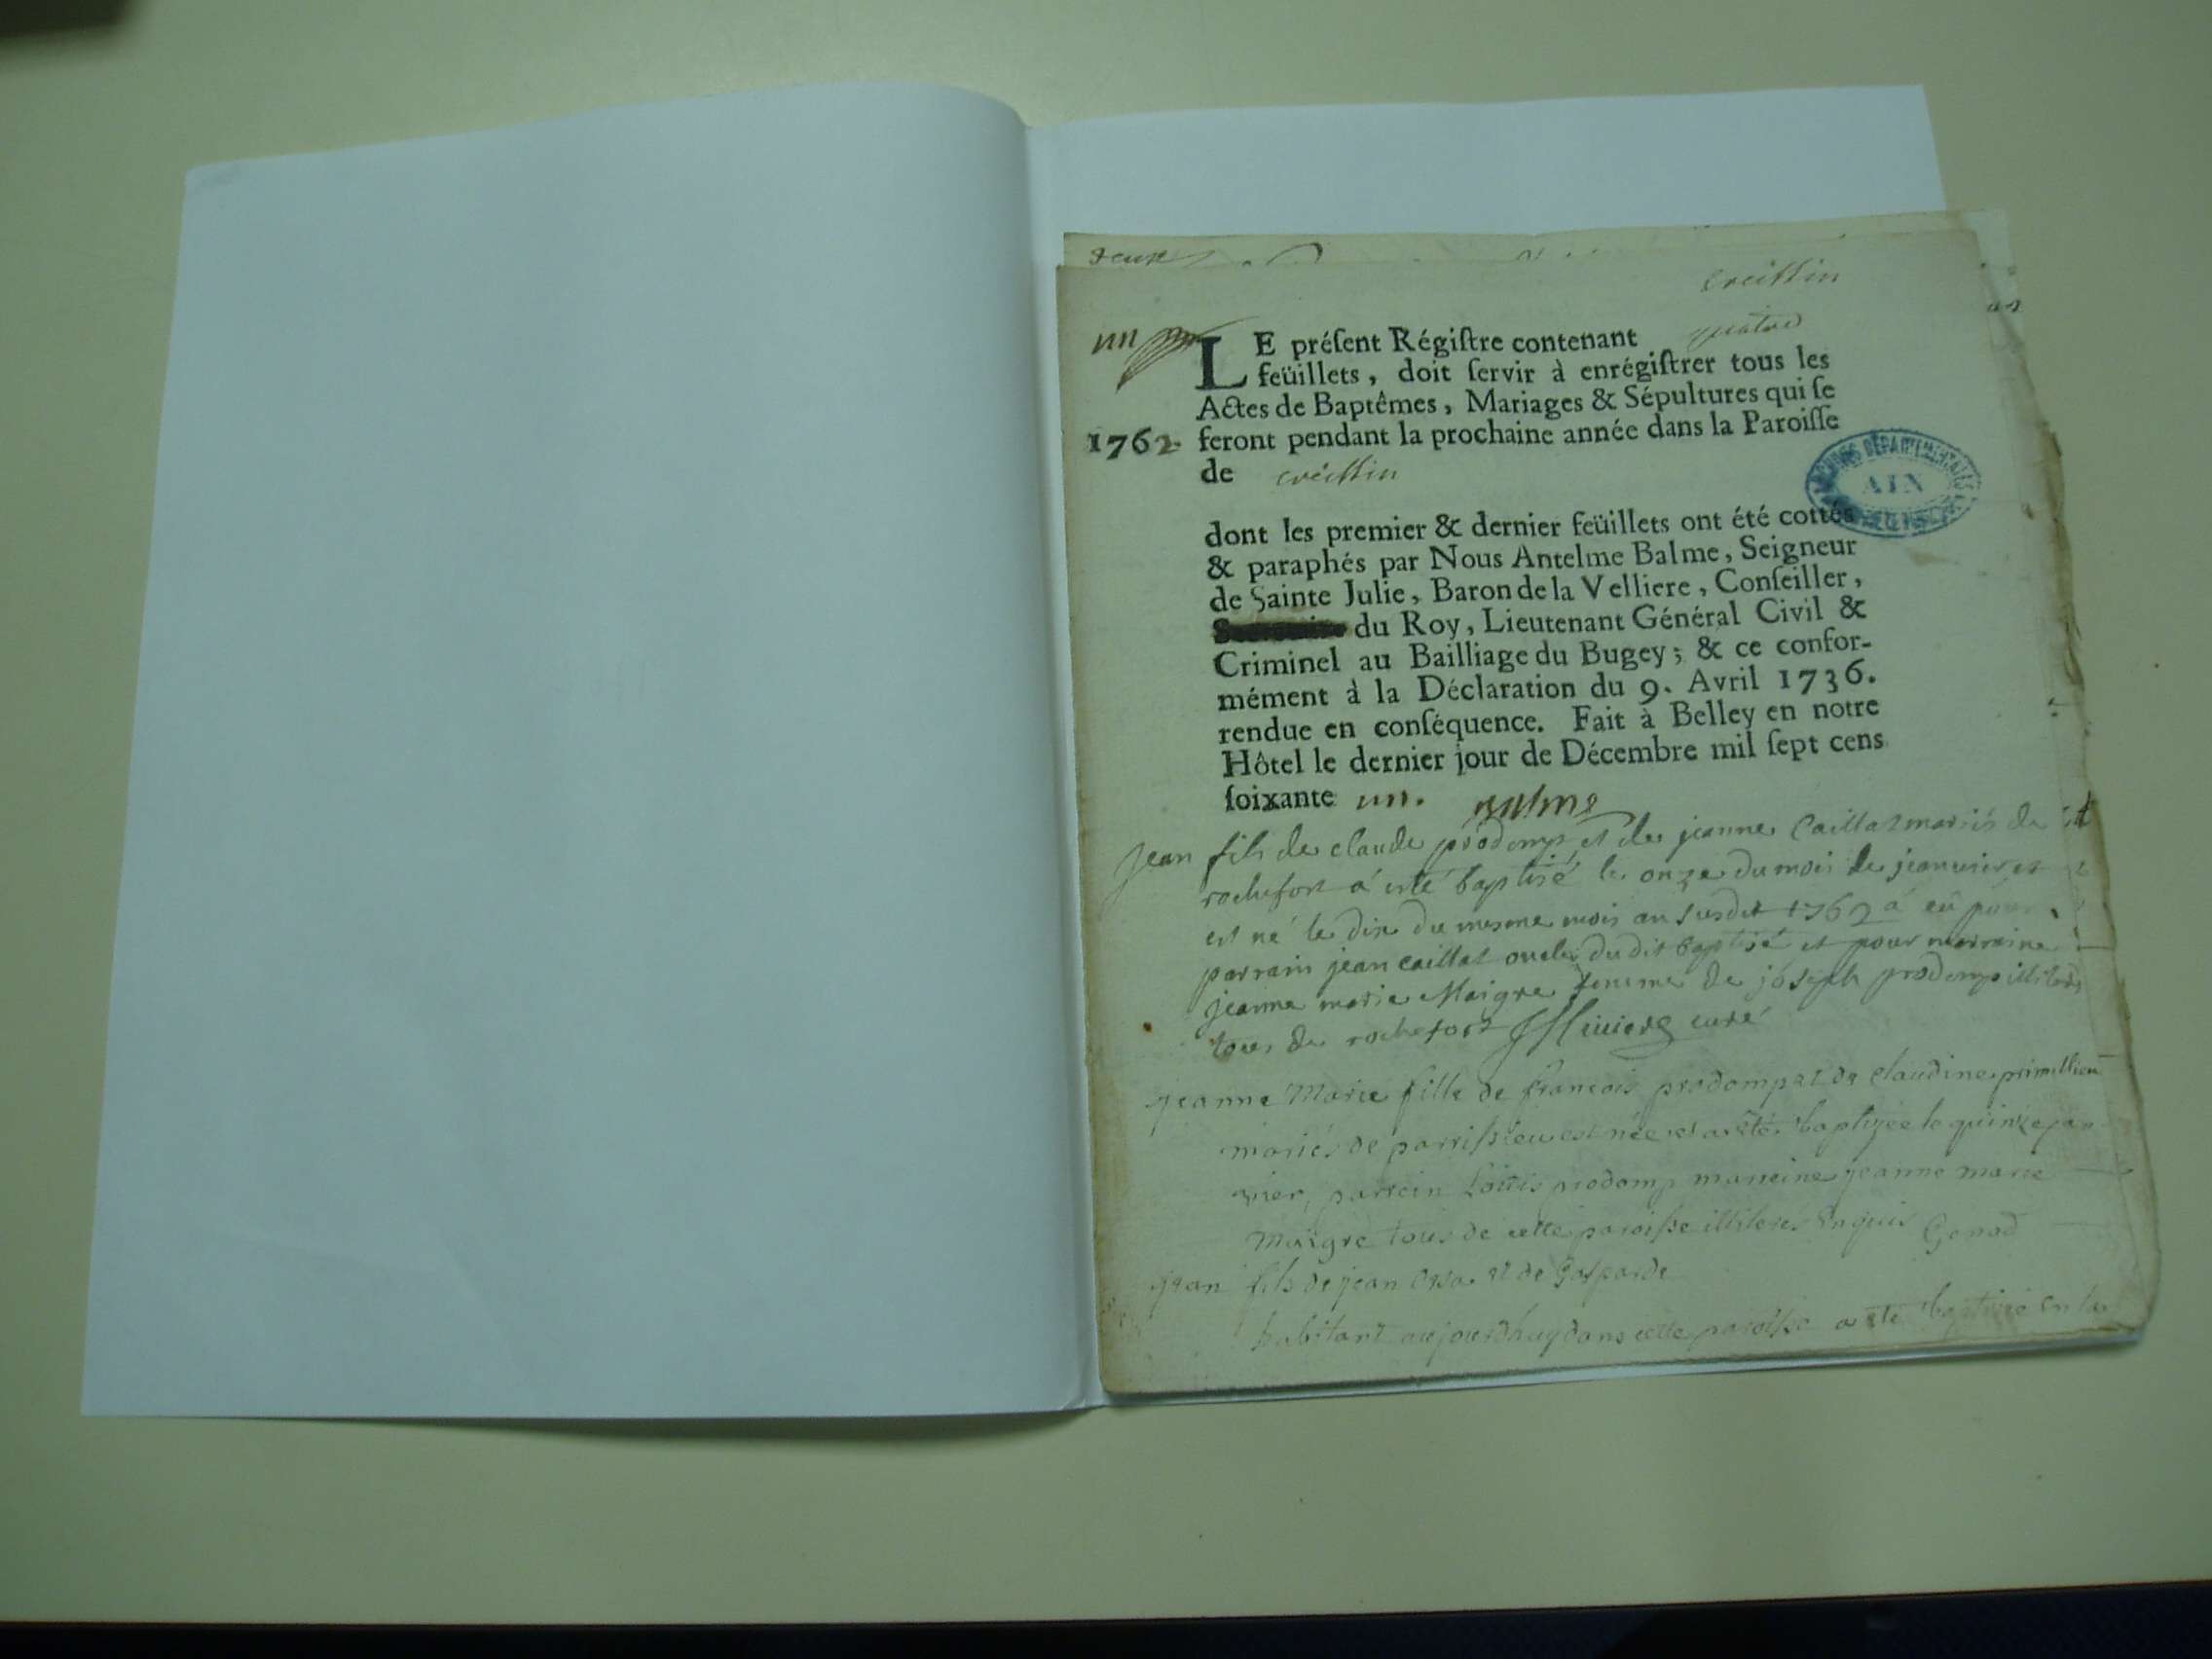 deux
creissin
un
LE préſent Régiſtre contenant quatre
feüillets, doit ſervir à enrégiſtrer tous les
Actes de Baptêmes, Mariages & Sépultures qui ſe
1762 feront pendant la prochaine année dans la Paroiſſe
de creissin
ARCHIVES DÉPARTEMENTALES
AIN
dont les premier & dernier feüillets ont été cottés
& paraphés par Nous Antelme Balme, Seigneur
de Sainte Julie, Baron de la Velliere, Conſeiller,
du Roy, Lieutenant Général Civil &
Criminel au Bailliage du Bugey; & ce confor-
mément à la Déclaration du 9. Avril 1736.
rendue en conſéquence. Fait à Belley en notre
Hôtel le dernier jour de Décembre mil ſept cens
ſoixante un. Balme
jean fils de claude prodomp et de jeanne Caillat mariés de
rochefort a esté baptisé le onze du mois de jeanvier et
est né le dix du mesme mois an susdit 1762 a eû pour
parrain jean caillat oncle dudit baptisé et pour marraine
jeanne marie Maigre femme de joseph prodomp illiterés
tous de rochefort curé
jeanne Marie fille de francois prodomp et de claudine
mariés de parrissieu est née et a eté baptizée le quinze jan
vier, parrein Loüis prodomp marreine jeanne marie
Maigre tous de cette paroisse illiterés Enquis Genod
jean fils de jean et de Gasparde
habitant aujourdhuy dans cette paroisse a eté baptizé en la